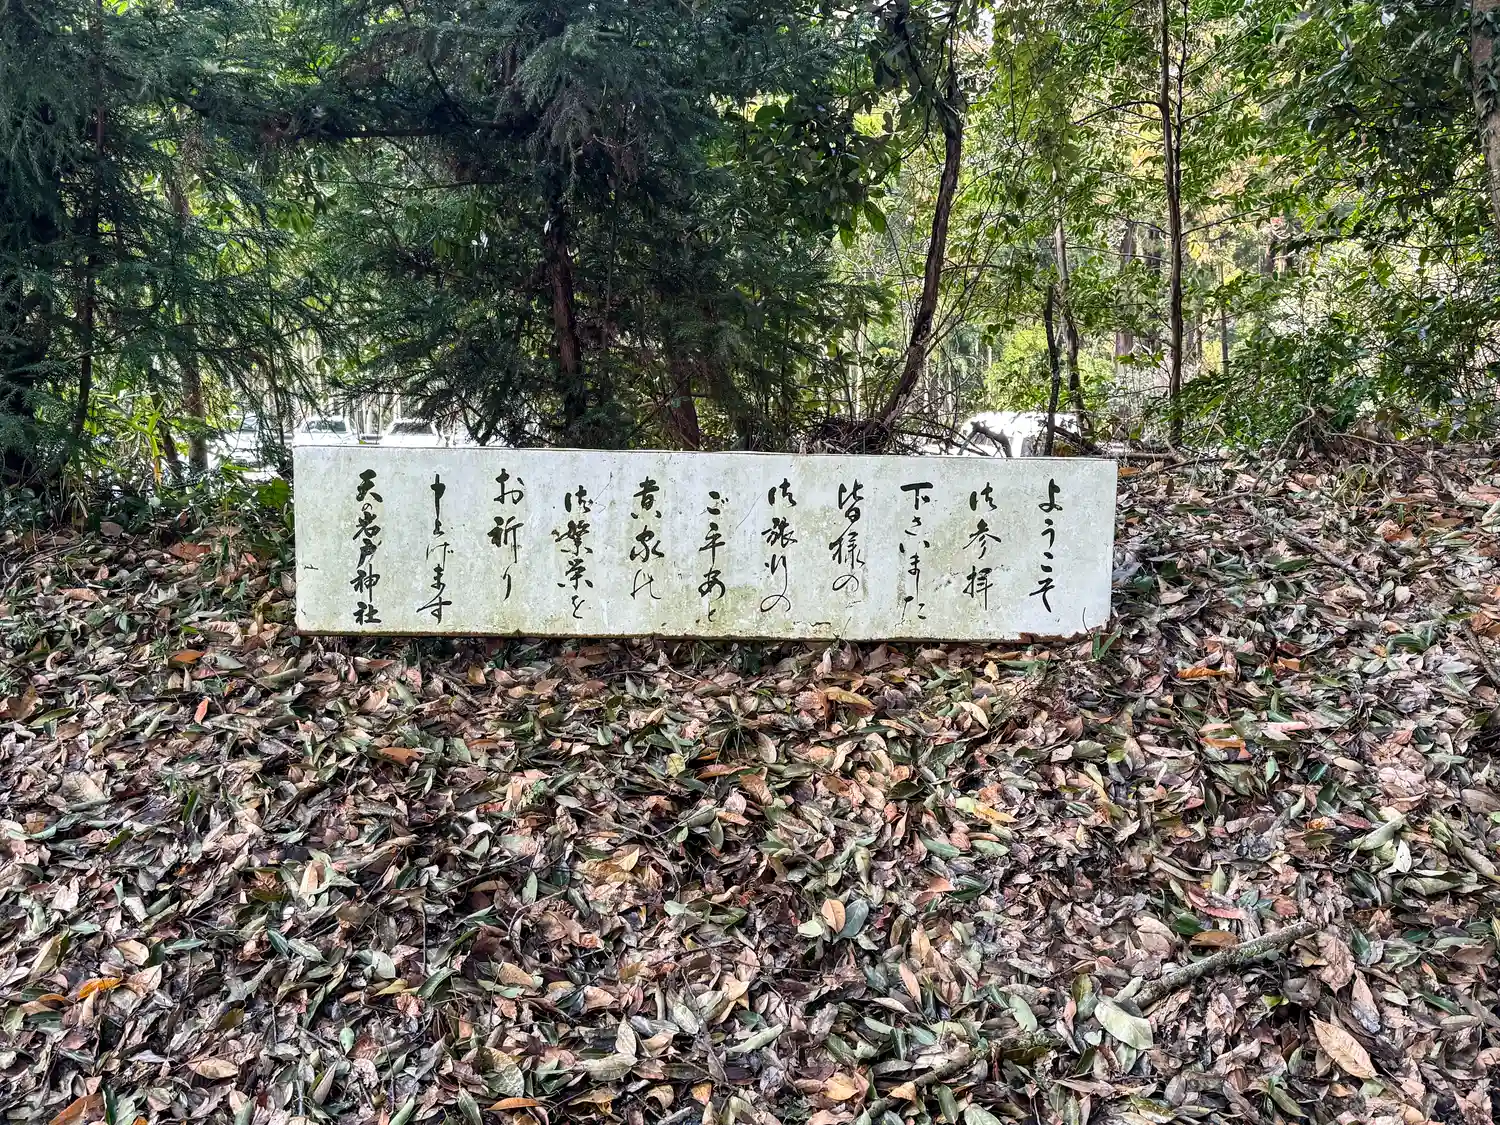 ようこそ
御参拝
下さいました
皆様の
御旅行の
ご平安と
貴家の
御繁栄を
お祈り
申上げます
天の岩戸神社